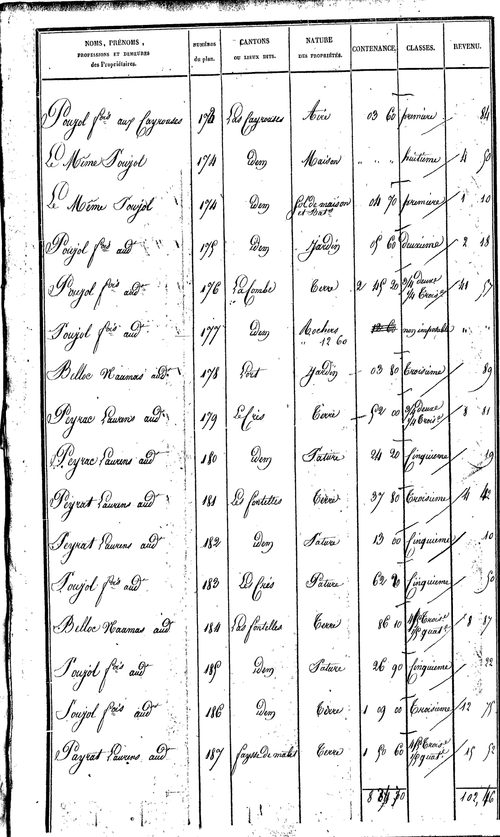 NOMS, PRÉNOMS, PROFESSIONS ET DEMEURES des Propriétaires. NUMÉROS du plan. CANTONS OU LIEUX DITS. NATURE DES PROPRIÉTÉS. CONTENANCE. CLASSES. REVENU.
Poujol f.ois aux Cayrouses 173 Las Cayrouses Aire 03 60 première 84
Le Même Poujol 174 idem Maison " " " huitième 4 50
Le Même Poujol 174 idem Sol de maison et bat.t 04 70 première 1 10
Poujol f.ois aud.t 175 idem Jardin 05 60 deuxième 2 18
Poujol f.ois aud.t 176 La Combe Terre 2 45 20 3/4 deuxe 1/4 trois.e 41 57
Poujol f.ois aud.t 177 idem Rochers " 12 60 12 60 non imposable " "
Belloc Naamas aud.t 178 L'ort Jardin 03 80 troisième 89
Peyrac Laurens aud.t 179 Le Crès Terre 52 00 3/4 deuxe 1/4 trois.e 8 81
Peyrac Laurens aud.t 180 idem Pature 24 20 Cinquième 19
Peyrat Laurens aud.t 181 Les fontelles Terre 37 80 Troisième 4 42
Peyrat Laurens aud.t 182 idem Pature 13 00 Cinquième 10
Poujol f.ois aud.t 183 Le Crès Pature 62 20 Cinquième 50
Belloc Naamas aud.t 184 Las fontelles Terre 86 10 trois.e quat.e 8 87
Poujol f.ois aud.t 185 idem Pature 26 90 Cinquième 22
Poujol f.ois aud.t 186 idem Terre 1 09 00 Troisième 12 75
Payrat Laurens aud.t 187 faysse de males Terre 1 50 60 trois.e quat.e 15 52
8 30 102,46